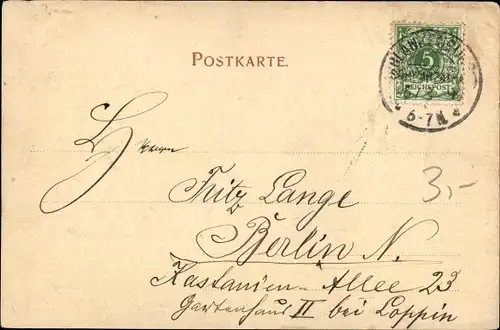 POSTKARTE.
5
REICHSPOST
6-7N
Herrn
Fritz Lange
3,-
Berlin N.
Kastanien-Allee 23
Gartenhaus II bei Loppin